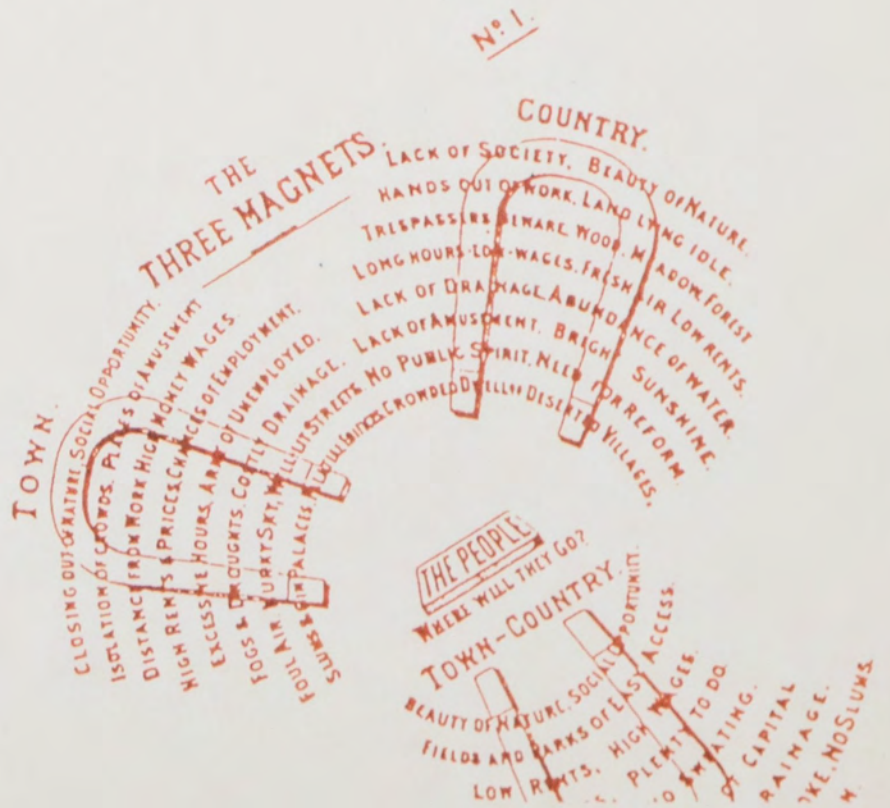 Nº 1.
THE
THREE MAGNETS.
TOWN.
CLOSING OUT OF NATURE. SOCIAL OPPORTUNITY.
ISOLATION OF CROWDS. PLACES OF AMUSEMENT
DISTANCE FROM WORK HIGH MONEY WAGES
HIGH RENTS & PRICES. CHANCES OF EMPLOYMENT.
EXCESSIVE HOURS. ARMY OF UNEMPLOYED.
FOGS & DROUGHTS. COSTLY DRAINAGE.
FOUL AIR. MURKY SKY. STREETS.
SLUMS & GIN PALACES.
COUNTRY.
LACK OF SOCIETY. BEAUTY OF NATURE.
HANDS OUT OF WORK. LAND LYING IDLE.
TRESPASSERS BEWARE. WOOD. MEADOW. FOREST
LONG HOURS-LOW-WAGES. FRESH AIR LOW RENTS.
LACK OF DRAINAGE. ABUNDANCE OF WATER.
LACK OF AMUSEMENT. BRIGHT SUNSHINE.
NO PUBLIC SPIRIT. NEED FOR REFORM.
CROWDED DESERTED VILLAGES.
THE PEOPLE
WHERE WILL THEY GO?
TOWN-COUNTRY.
BEAUTY OF NATURE, SOCIAL OPPORTUNITY.
FIELDS AND PARKS OF EASY ACCESS.
LOW RENTS. HIGH WAGES.
PLENTY TO DO.
SWEATING.
OF CAPITAL
NO SLUMS.